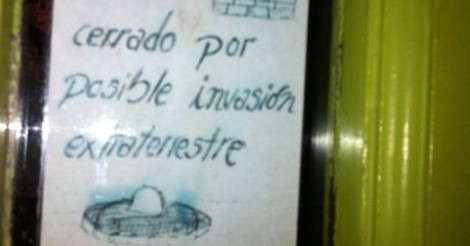 cerrado por
posible invasión
extraterrestre